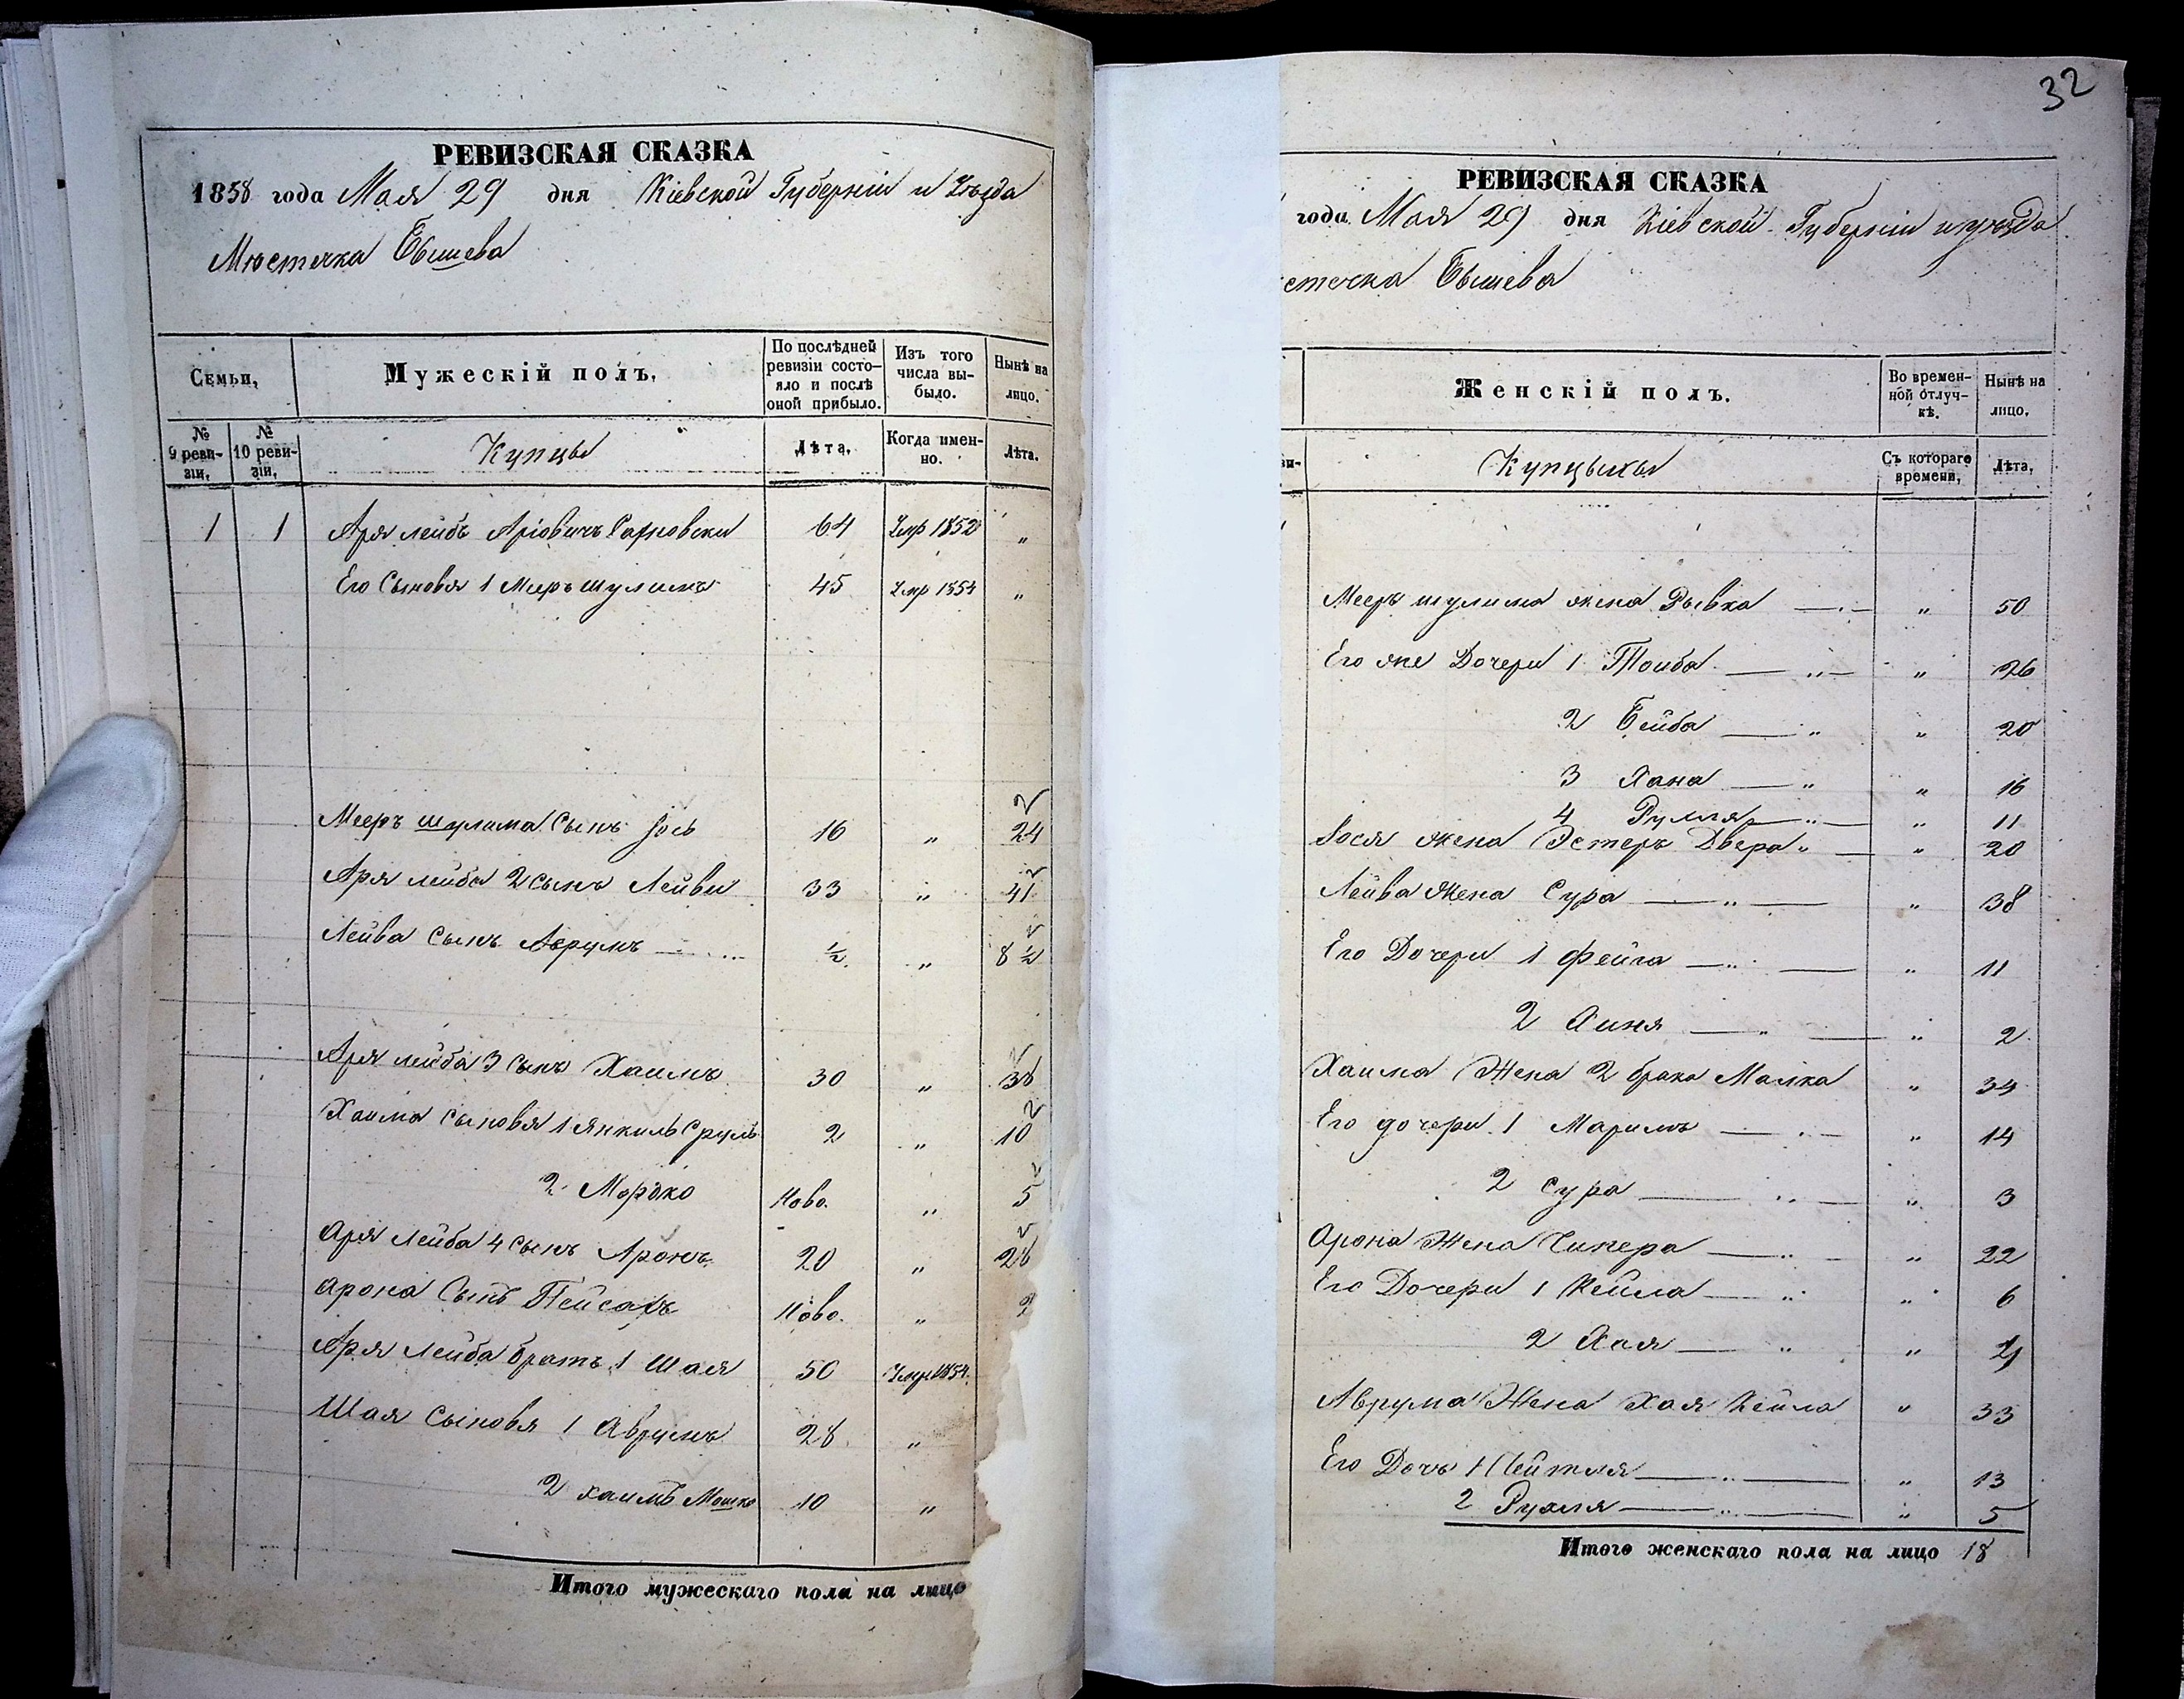 РЕВИЗСКАЯ СКАЗКА
1858 года Мая 29 дня Кіевской Губерніи и Уѣзда
Мѣстечка Бышева
Семьи,
Мужескій полъ.
По послѣдней ревизіи состояло и послѣ оной прибыло.
Изъ того числа выбыло.
Нынѣ на лицо.
№ 9 ревизіи,
№ 10 ревизіи,
Купцы
Лѣта,
Когда именно.
Лѣта.
1 1 Аря лейбъ Аріовичъ 64 Умр 1852 "
Его Сыновья 1 Мееръ шулимъ 45 Умр 1854 "
Мееръ шулима Сынъ Іось 16 " 24
Аря лейба 2 сынъ Лейви 33 " 41
Лейва сынъ Аврумъ ½ " 8 ½
Аря лейба 3 сынъ Хаимъ 30 " 38
Хаима сыновя 1 Янкиль Сруль 2 " 10
2 Мордко Ново. " 5
Аря Лейба 4 сынъ Аронъ 20 " 28
Арона Сынъ Пейсахъ Ново. "
Аря Лейба братъ 1 Шая 50 Умр 1854.
Шая Сыновя 1 Аврумъ 28 "
2 хаимъ Мошко 10 "
Итого мужескаго пола на лицо
32
РЕВИЗСКАЯ СКАЗКА
года Мая 29 дня Кіевской Губерніи и уѣзда
стечка Бышева
Женскій полъ.
Во временной отлучкѣ.
Нынѣ на лицо.
Купцыхы
Съ котораго времени,
Лѣта,
Мееръ шулима жена Рывка " 50
Его же Дочери 1 Тоиба " 26
2 Бейба " 20
3 Хана " 16
4 " 11
Іося жена Эстеръ Двера " 20
Лейва Жена Сура " 38
Его Дочери 1 Фейга " 11
2 " 2
Хаима Жена 2 брака Малка " 34
Его дочери 1 Маримъ " 14
2 Сура " 3
Арона Жена Ципера " 22
Его Дочери 1 Кейла " 6
2 Хая "
Аврума Жена Хая Кейла " 33
Его Дочь 1 " 13
2 Рухля " 5
Итого женскаго пола на лицо 18